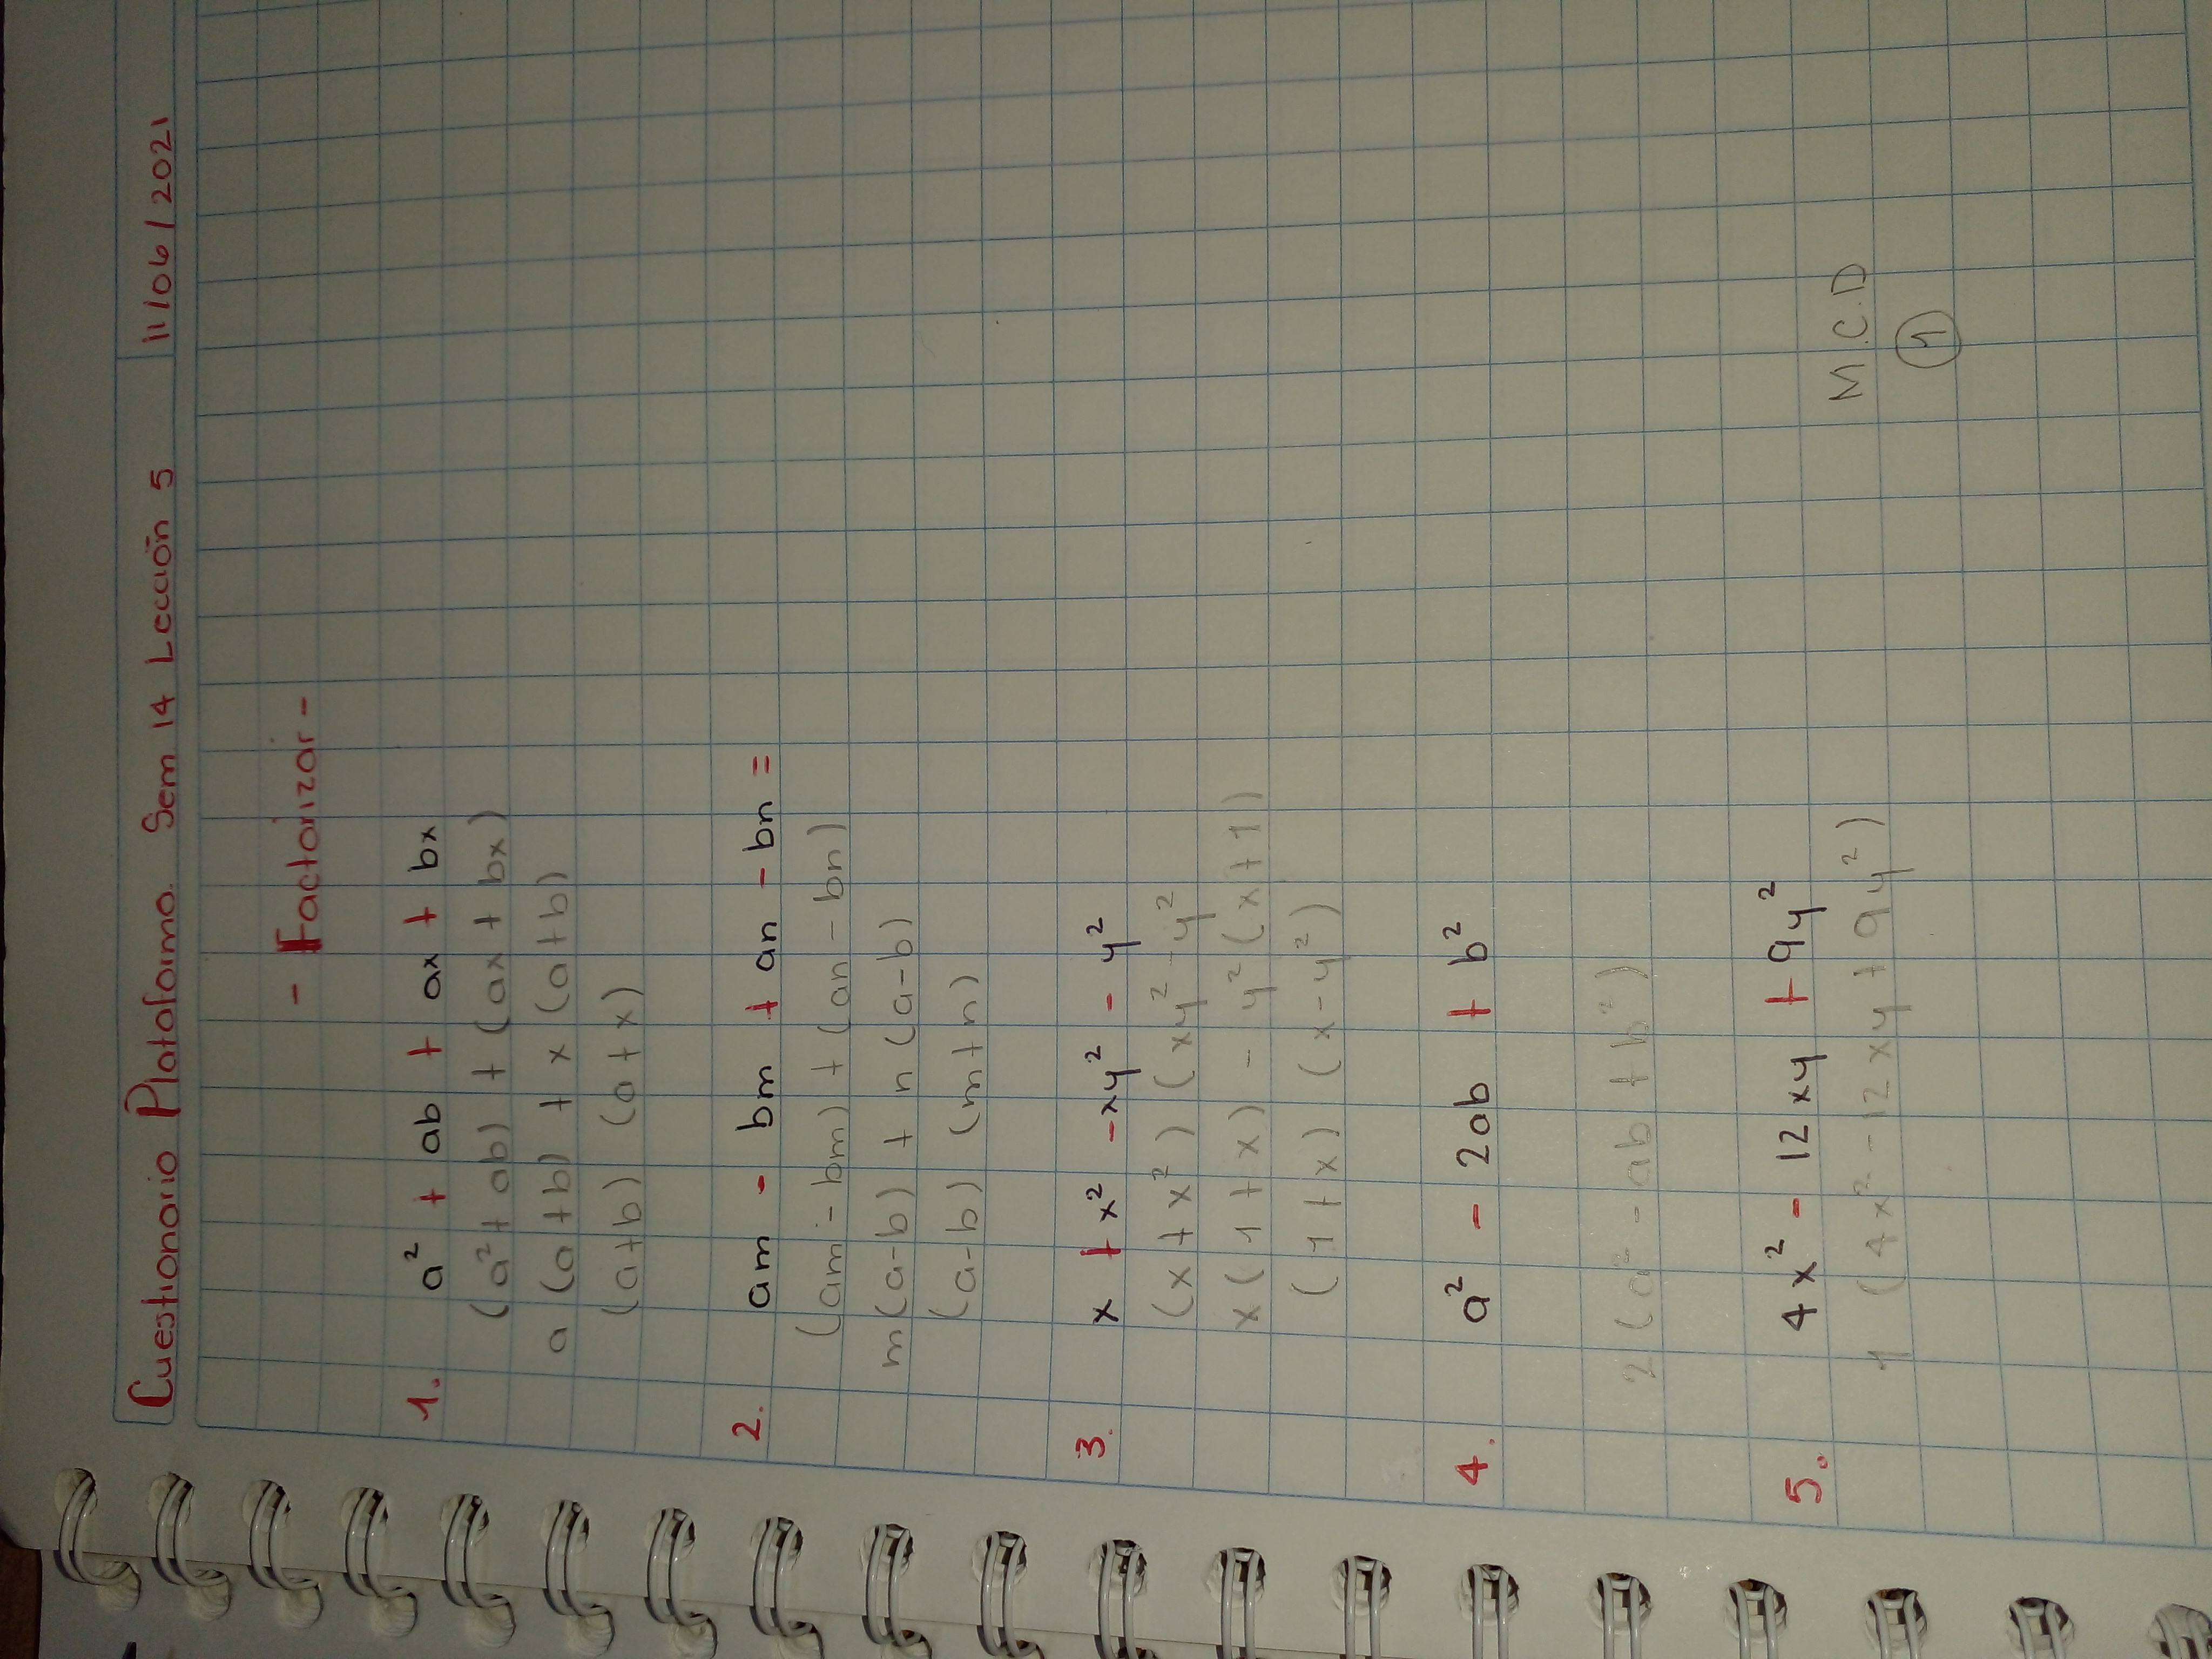 Cuestionario Plataforma. Sem 14 Lección 5 11/06/2021
- Factorizar -
1. a² + ab + ax + bx
(a² + ab) + (ax + bx)
a (a+b) + x (a+b)
(a+b) (a+x)
2. am - bm + an - bn =
(am - bm) + (an - bn)
m(a-b) + n(a-b)
(a-b) (m+n)
3. x + x² - xy² - y²
(x + x²) (xy² - y²
x(1+x) - y²(x+1)
(1+x) (x-y²)
4. a² - 2ab + b²
2(a² - ab + b²)
5. 4x² - 12xy + 9y²
1 (4x² - 12xy + 9y²)
M.C.D
1